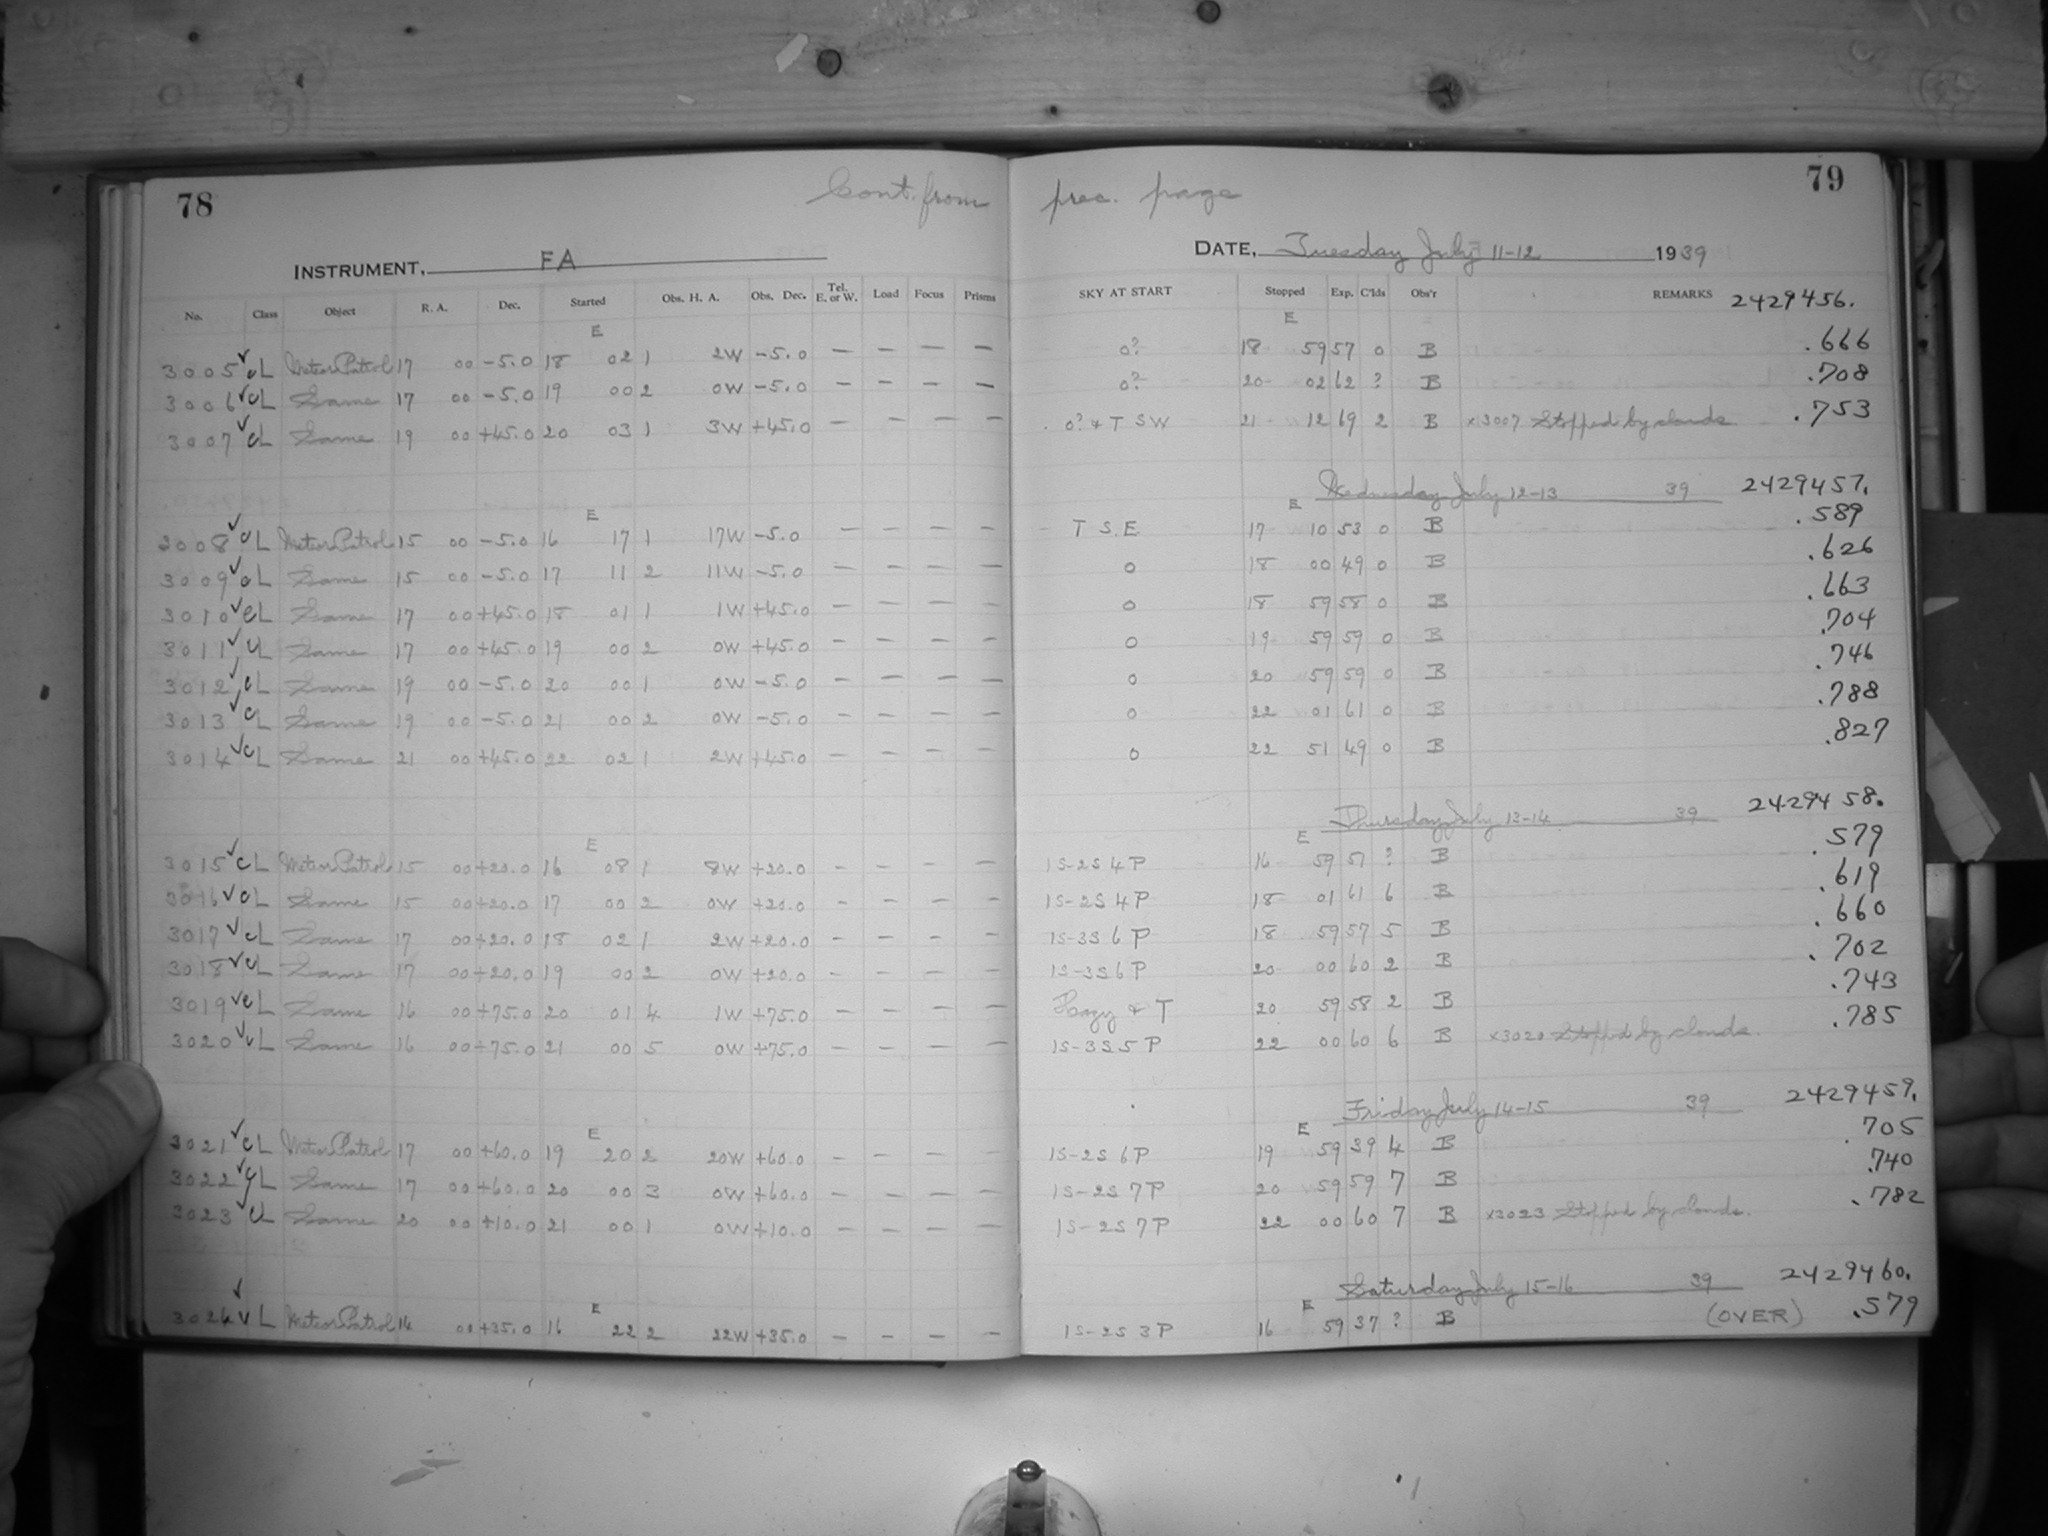 78
Cont. from prec. page
79
INSTRUMENT, FA
DATE, Tuesday July 11-12 1939
No. Class Object R. A. Dec. Started Obs. H. A. Obs. Dec. Tel. E. or W. Load Focus Prisms SKY AT START Stopped Exp. C'lds Obs'r REMARKS 2429456.
E E
3005 ✓ cL Meteor Patrol 17 00 -5.0 18 02 1 2W -5.0 — — — — 0? 18 59 57 0 B .666
3006 ✓ cL Same 17 00 -5.0 19 00 2 0W -5.0 — — — — 0? 20 02 62 ? B .708
3007 ✓ cL Same 19 00 +45.0 20 03 1 3W +45.0 — — — — 0? & T SW 21 12 69 2 B x3007 Stopped by clouds .753
Wednesday July 12-13 39 2429457.
E E
3008 ✓ cL Meteor Patrol 15 00 -5.0 16 17 1 17W -5.0 — — — — T S.E 17 10 53 0 B .589
3009 ✓ cL Same 15 00 -5.0 17 11 2 11W -5.0 — — — — 0 18 00 49 0 B .626
3010 ✓ cL Same 17 00 +45.0 18 01 1 1W +45.0 — — — — 0 18 59 58 0 B .663
3011 ✓ cL Same 17 00 +45.0 19 00 2 0W +45.0 — — — — 0 19 59 59 0 B .704
3012 ✓ cL Same 19 00 -5.0 20 00 1 0W -5.0 — — — — 0 20 59 59 0 B .746
3013 ✓ cL Same 19 00 -5.0 21 00 2 0W -5.0 — — — — 0 22 01 61 0 B .788
3014 ✓ cL Same 21 00 +45.0 22 02 1 2W +45.0 — — — — 0 22 51 49 0 B .827
Thursday July 13-14 39 2429458.
E E
3015 ✓ cL Meteor Patrol 15 00 +20.0 16 08 1 8W +20.0 — — — — 1S-2S 4P 16 59 51 ? B .579
3016 ✓ cL Same 15 00 +20.0 17 00 2 0W +20.0 — — — — 1S-2S 4P 18 01 61 6 B .619
3017 ✓ cL Same 17 00 +20.0 18 02 1 2W +20.0 — — — — 1S-3S 6P 18 59 57 5 B .660
3018 ✓ cL Same 17 00 +20.0 19 00 2 0W +20.0 — — — — 1S-3S 6P 20 00 60 2 B .702
3019 ✓ cL Same 16 00 +75.0 20 01 4 1W +75.0 — — — — Hazy & T 20 59 58 2 B .743
3020 ✓ cL Same 16 00 +75.0 21 00 5 0W +75.0 — — — — 1S-3S 5P 22 00 60 6 B x3020 Stopped by clouds. .785
Friday July 14-15 39 2429459.
E E
3021 ✓ cL Meteor Patrol 17 00 +60.0 19 20 2 20W +60.0 — — — — 1S-2S 6P 19 59 39 4 B .705
3022 ✓ cL Same 17 00 +60.0 20 00 3 0W +60.0 — — — — 1S-2S 7P 20 59 59 7 B .740
3023 ✓ cL Same 20 00 +10.0 21 00 1 0W +10.0 — — — — 1S-2S 7P 22 00 60 7 B x3023 Stopped by clouds. .782
Saturday July 15-16 39 2429460.
E E
3024 ✓ L Meteor Patrol 14 00 +35.0 16 22 2 22W +35.0 — — — — 1S-2S 3P 16 59 37 ? B (OVER) .579